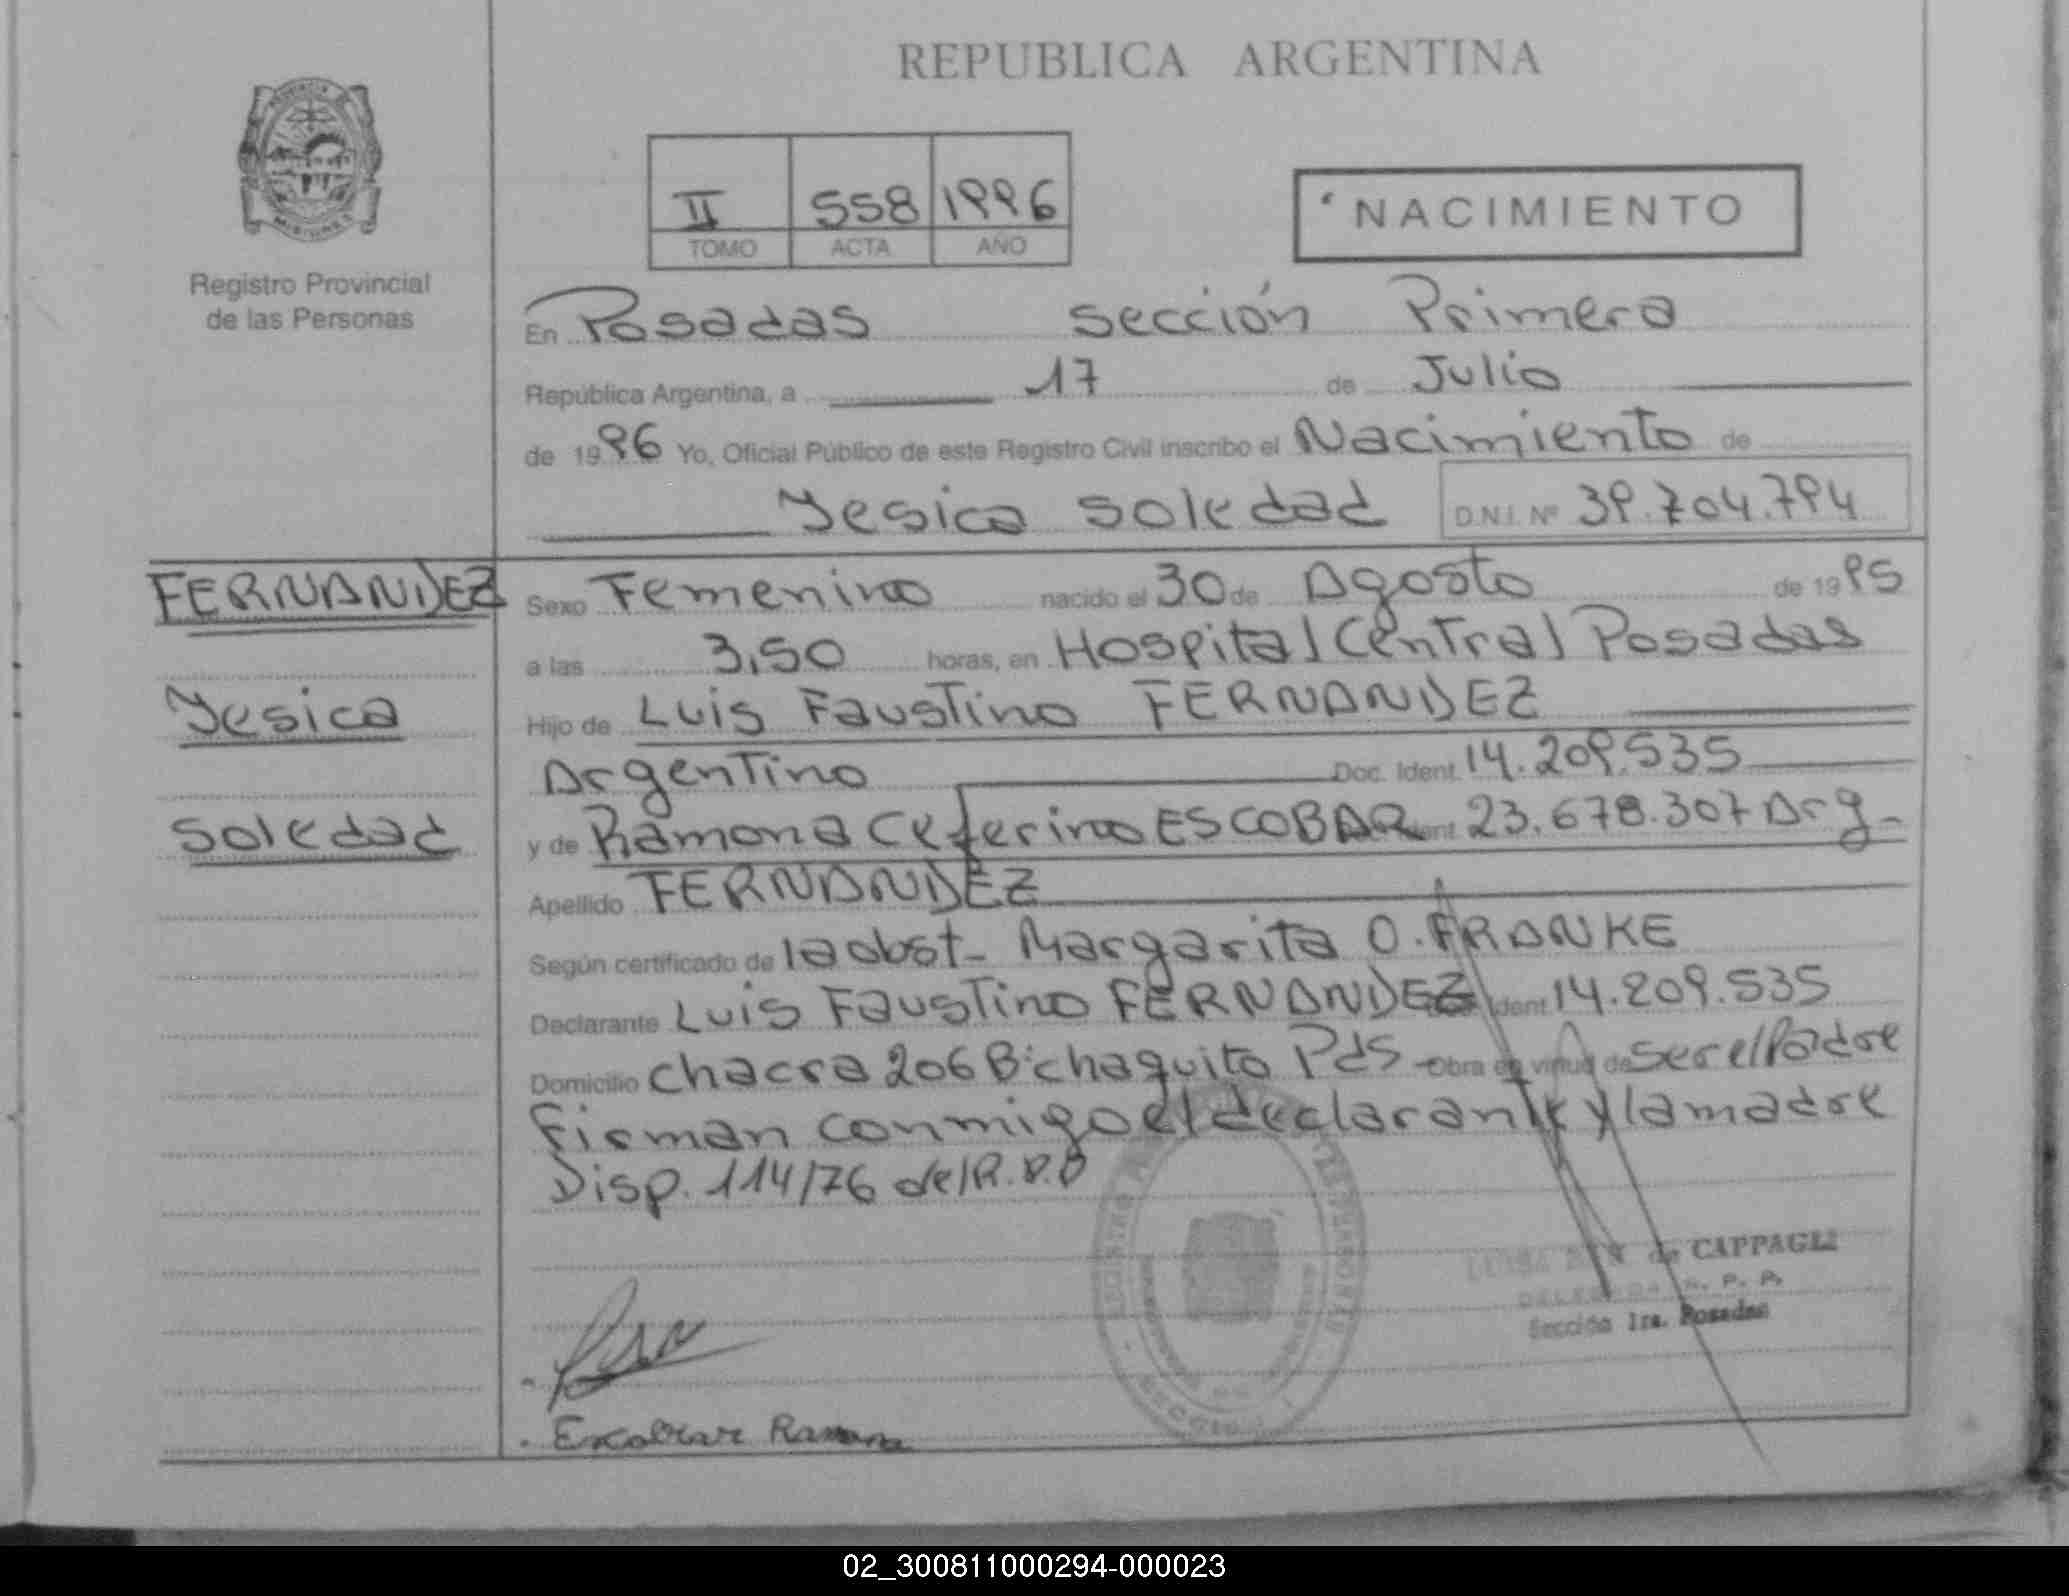 REPUBLICA ARGENTINA
II 558 1996
TOMO ACTA AÑO
NACIMIENTO
Registro Provincial
de las Personas
En Posadas sección Primera
República Argentina, a 17 de Julio
de 1996 Yo, Oficial Público de este Registro Civil inscribo el Nacimiento de
Yesica Soledad D.N.I. Nº 39.704.794
FERNANDEZ
Yesica
Soledad
Sexo Femenino nacido el 30 de Agosto de 1995
a las 3,50 horas, en Hospital Central Posadas
Hijo de Luis Faustino FERNANDEZ
Argentino Doc. Ident 14.209.535
y de Ramona Ceferina ESCOBAR 23.678.307 Arg-
Apellido FERNANDEZ
Según certificado de la obst- Margarita O. FRANKE
Declarante Luis Faustino FERNANDEZ Ident 14.209.535
Domicilio chacra 206 Bº chaquito Pds - Obra en virtud de ser el Padre
firman conmigo el declarante y la madre
Disp. 114/76 del R.P.P
de CAPPAGLI
DELEGADA R. P. P.
Sección 1ra. Posadas
Escobar Ramona
02_300811000294-000023